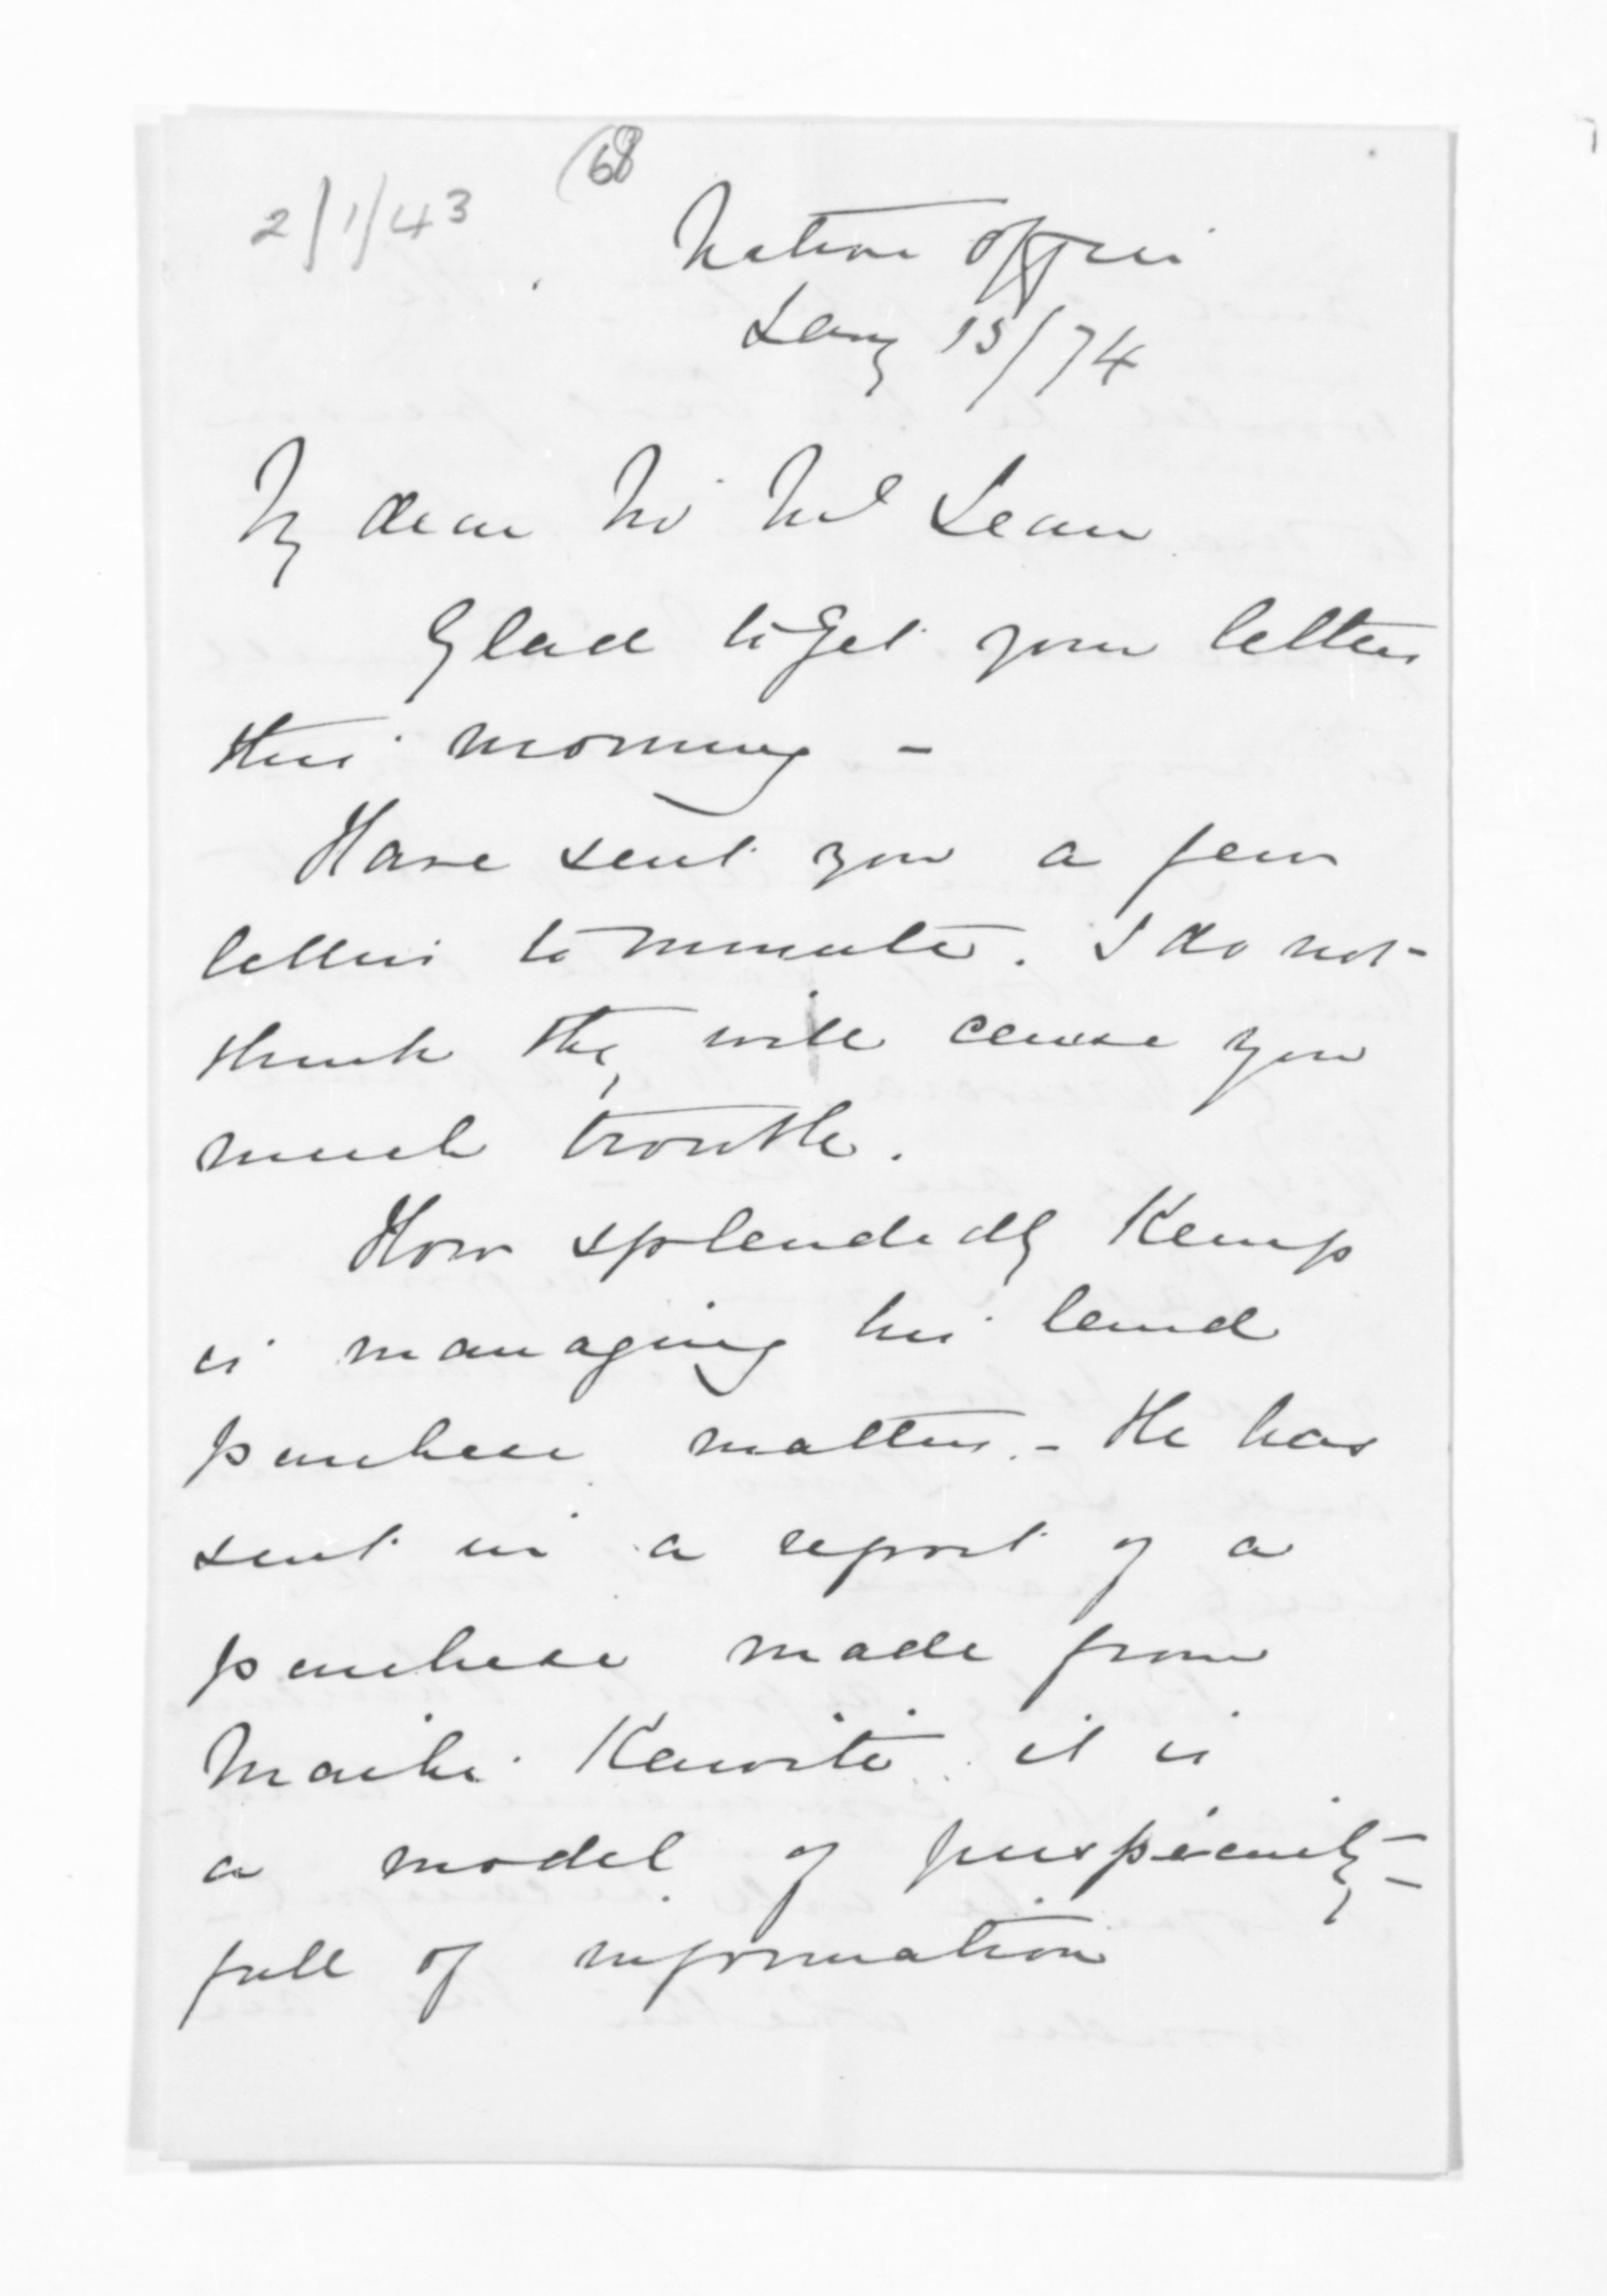 2/1/43
(68
Native Office
Jany 15/74
My dear Mr McLean
Glad to get your letter
this morning -
Have sent you a few
letters to minute. I do not
think they will cause you
much trouble.
How splendidly Kemp
is managing his land
purchase matters. - He has
sent in a report of a
purchase made from
Maihi Kawiti it is
a model of perspicuity -
full of information